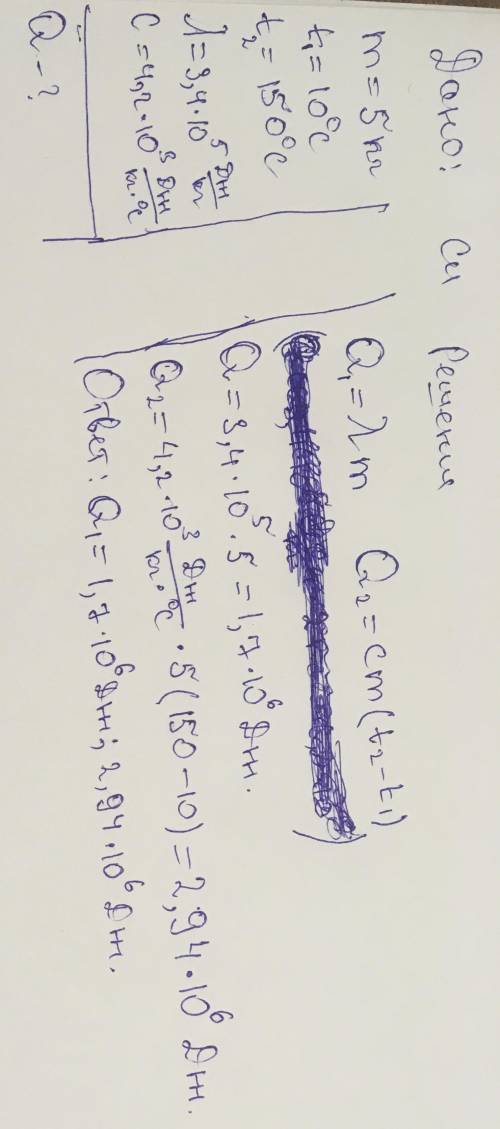 Дано:
m = 5 кг
t₁ = 10°C
t₂ = 150°C
λ = 3,4·10⁵ Дж/кг
C = 4,2·10³ Дж/кг·°C
Q - ?
Си
Решения
Q₁ = λm Q₂ = cm(t₂-t₁)
Q = 3,4·10⁵·5 = 1,7·10⁶ Дж.
Q₂ = 4,2·10³ Дж/кг·°C · 5(150-10) = 2,94·10⁶ Дж.
Ответ: Q₁ = 1,7·10⁶ Дж; 2,94·10⁶ Дж.